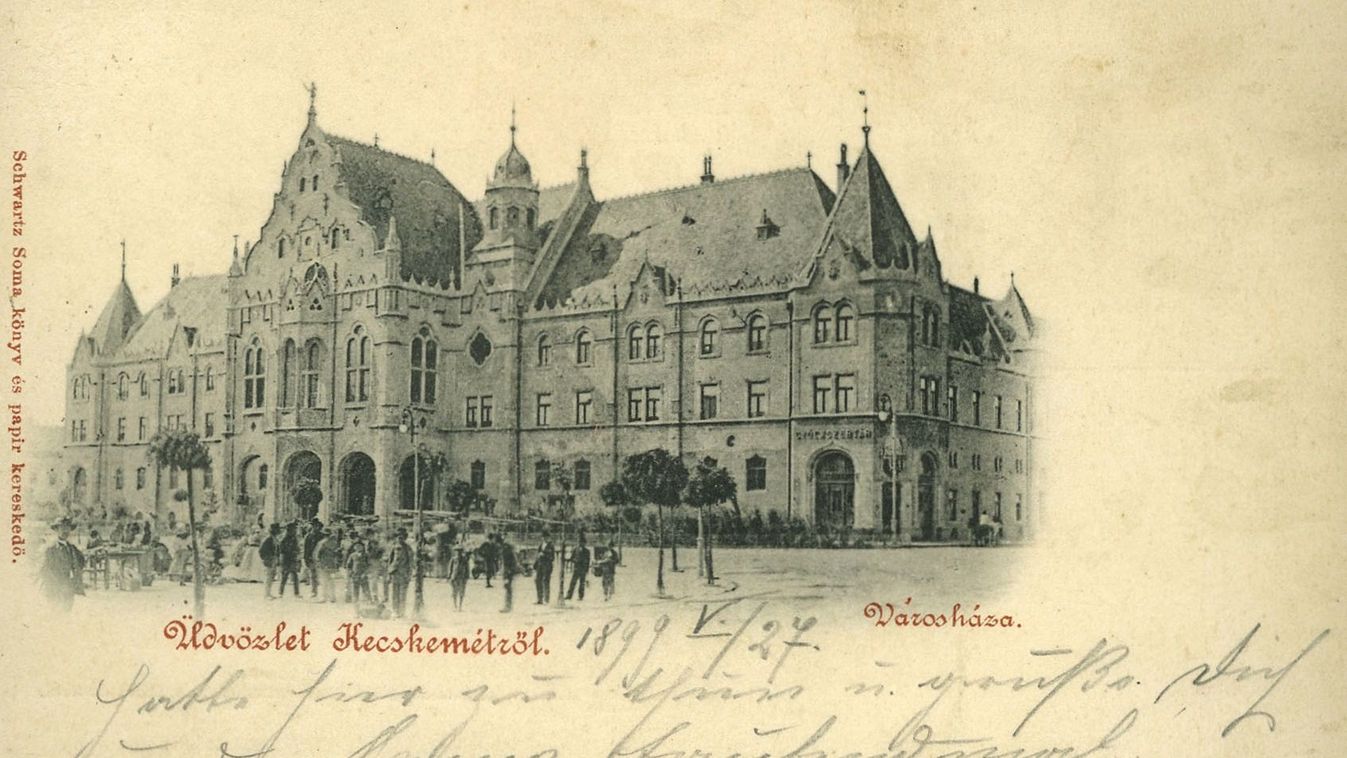 Schwartz Soma könyv és papir kereskedő.
GYÓGYSZERTÁR
Üdvözlet Kecskemétről. 1899 V./27.
Városháza.
hatte hier zu thun u. grüße Dich